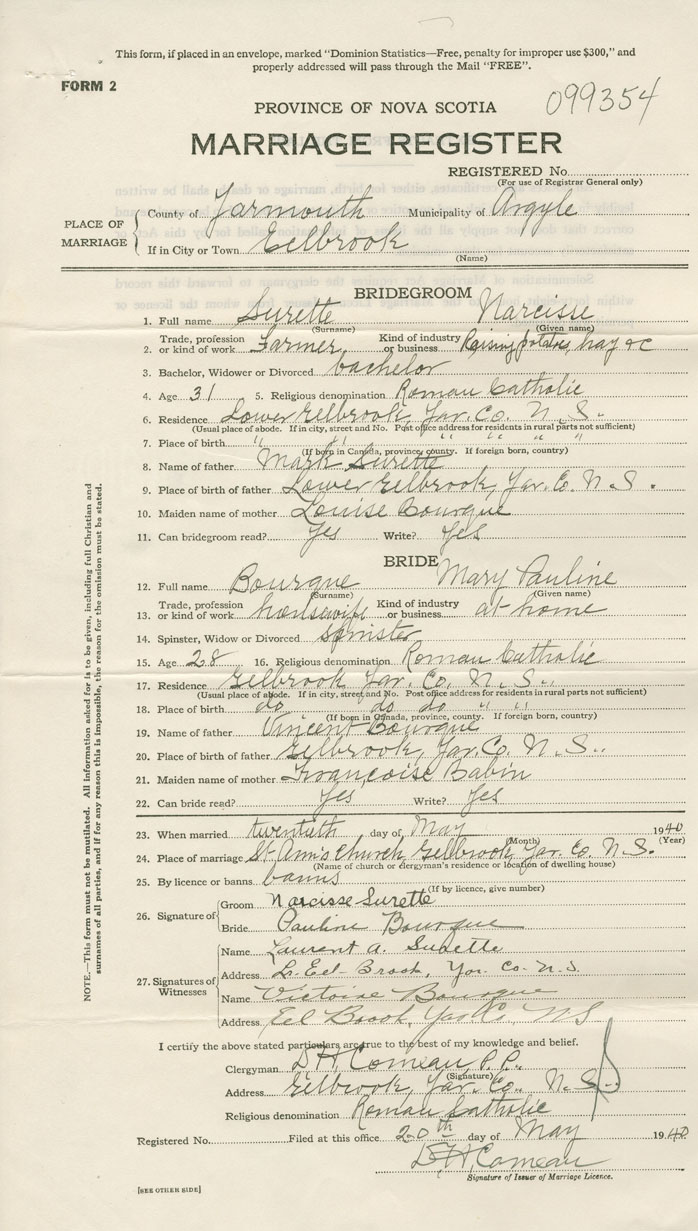 This form, if placed in an envelope, marked "Dominion Statistics—Free, penalty for improper use $300," and
properly addressed will pass through the Mail "FREE".
FORM 2
099354
PROVINCE OF NOVA SCOTIA
MARRIAGE REGISTER
REGISTERED No.
(For use of Registrar General only)
PLACE OF MARRIAGE
County of Yarmouth Municipality of Argyle
If in City or Town Eelbrook
(Name)
BRIDEGROOM
1. Full name Surette Narcisse
(Surname) (Given name)
2. Trade, profession or kind of work Farmer Kind of industry or business Raising potatoes, hay &c
3. Bachelor, Widower or Divorced bachelor
4. Age 31 5. Religious denomination Roman Catholic
6. Residence Lower Eelbrook, Yar. Co. N. S.
(Usual place of abode. If in city, street and No. Post office address for residents in rural parts not sufficient)
7. Place of birth " " " " " "
(If born in Canada, province, county. If foreign born, country)
8. Name of father Mark Surette
9. Place of birth of father Lower Eelbrook, Yar. Co. N. S.
10. Maiden name of mother Louise Bourque
11. Can bridegroom read? Yes Write? Yes
BRIDE
12. Full name Bourque Mary Pauline
(Surname) (Given name)
13. Trade, profession or kind of work housewife Kind of industry or business at home
14. Spinster, Widow or Divorced spinster
15. Age 28 16. Religious denomination Roman Catholic
17. Residence Eelbrook Yar. Co. N. S.
(Usual place of abode. If in city, street and No. Post office address for residents in rural parts not sufficient)
18. Place of birth do do do " "
(If born in Canada, province, county. If foreign born, country)
19. Name of father Vincent Bourque
20. Place of birth of father Eelbrook, Yar. Co. N. S.
21. Maiden name of mother Françoise Babin
22. Can bride read? Yes Write? Yes
23. When married twentieth day of May 1940
(Month) (Year)
24. Place of marriage St Ann's Church Eelbrook, Yar. Co. N. S.
(Name of church or clergyman's residence or location of dwelling house)
25. By licence or banns banns
(If by licence, give number)
26. Signature of
Groom Narcisse Surette
Bride Pauline Bourque
27. Signatures of Witnesses
Name Laurent A. Surette
Address L. Eel-Brook, Yar. Co. N.S.
Name Victoire Bourque
Address Eel Brook, Yar Co, N S
I certify the above stated particulars are true to the best of my knowledge and belief.
Clergyman D H Comeau P. P.
(Signature)
Address Eelbrook, Yar. Co. N. S.
Religious denomination Roman Catholic
Registered No. Filed at this office 20th day of May 1940
D. H. Comeau
Signature of Issuer of Marriage Licence.
[SEE OTHER SIDE]
NOTE.—This form must not be mutilated. All information asked for is to be given, including full Christian and
surnames of all parties, and if for any reason this is impossible, the reason for the omission must be stated.